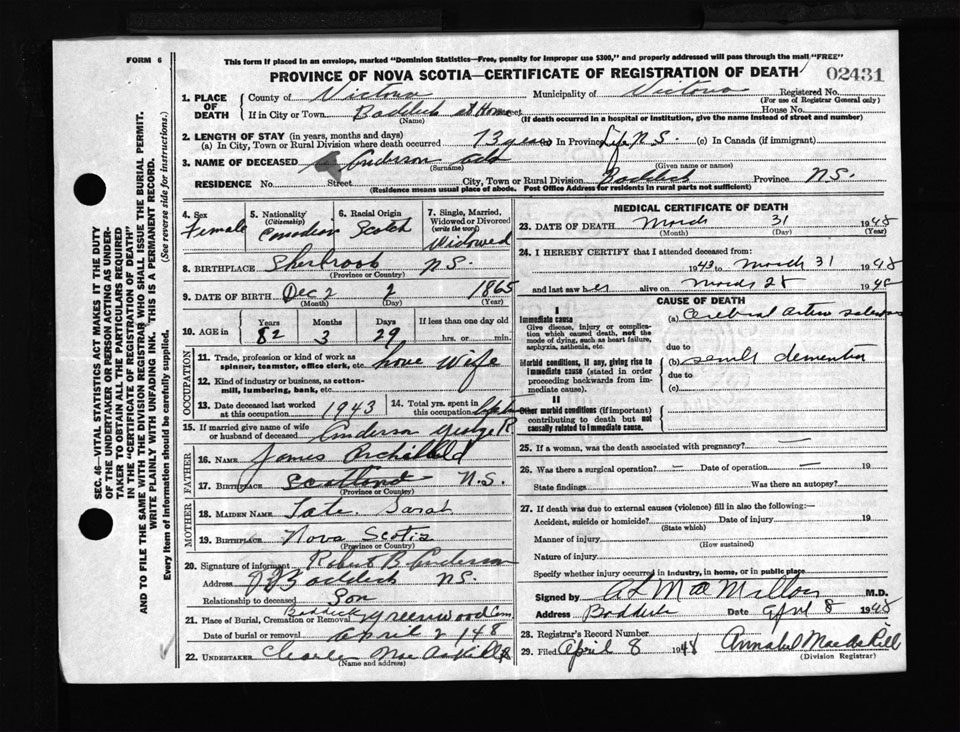 FORM 6
This form if placed in an envelope, marked "Dominion Statistics—Free, penalty for improper use $300," and properly addressed will pass through the mail "FREE"
PROVINCE OF NOVA SCOTIA—CERTIFICATE OF REGISTRATION OF DEATH
02431
1. PLACE OF DEATH County of Victoria Municipality of Victoria Registered No.
(For use of Registrar General only)
If in City or Town Baddeck at Home House No.
(Name) (If death occurred in a hospital or institution, give the name instead of street and number)
2. LENGTH OF STAY (in years, months and days)
(a) In City, Town or Rural Division where death occurred 73 years (b) In Province Life N.S. (c) In Canada (if immigrant)
3. NAME OF DECEASED Anderson Ada
(Surname) (Given name or names)
RESIDENCE No. Street City, Town or Rural Division Baddeck Province N.S.
(Residence means usual place of abode. Post Office Address for residents in rural parts not sufficient)
4. Sex Female
5. Nationality (Citizenship) Canadian
6. Racial Origin Scotch
7. Single, Married, Widowed or Divorced (write the word) Widowed
8. BIRTHPLACE Sherbrook N.S.
(Province or Country)
9. DATE OF BIRTH Dec 2 2 1865
(Month) (Day) (Year)
10. AGE in Years 82 Months 3 Days 29 If less than one day old hrs. or min.
OCCUPATION
11. Trade, profession or kind of work as spinner, teamster, office clerk, etc. house Wife
12. Kind of industry or business, as cotton-mill, lumbering, bank, etc.
13. Date deceased last worked at this occupation 1943
14. Total yrs. spent in this occupation
15. If married give name of wife or husband of deceased Anderson George R
FATHER
16. NAME James Archibald
17. BIRTHPLACE Scotland N.S.
(Province or Country)
MOTHER
18. MAIDEN NAME Tate Sarah
19. BIRTHPLACE Nova Scotia
(Province or Country)
20. Signature of informant Robert B Anderson
Address Baddeck N.S.
Relationship to deceased Son
21. Place of Burial, Cremation or Removal Baddeck Greenwood Cem
Date of burial or removal April 2 148
22. UNDERTAKER Charles MacAskill
(Name and address)
MEDICAL CERTIFICATE OF DEATH
23. DATE OF DEATH March 31 1948
(Month) (Day) (Year)
24. I HEREBY CERTIFY that I attended deceased from:
1943 to March 31 1948
and last saw her alive on March 28 1948
CAUSE OF DEATH
I
Immediate cause
Give disease, injury or complication which caused death, not the mode of dying, such as heart failure, asphyxia, asthenia, etc.
(a) Cerebral arterio sclerosis
due to
Morbid conditions, if any, giving rise to immediate cause (stated in order proceeding backwards from immediate cause).
(b) senile dementia
due to
(c)
II
Other morbid conditions (if important) contributing to death but not causally related to immediate cause.
25. If a woman, was the death associated with pregnancy? —
26. Was there a surgical operation? — Date of operation — 19
State findings Was there an autopsy?
27. If death was due to external causes (violence) fill in also the following:—
Accident, suicide or homicide? Date of injury 19
(State which)
Manner of injury
(How sustained)
Nature of injury
Specify whether injury occurred in industry, in home, or in public place
Signed by A L MacMillan M.D.
Address Baddeck Date April 8 1948
28. Registrar's Record Number
29. Filed April 8 1948 Annabel MacAskill
(Division Registrar)
SEC. 46—VITAL STATISTICS ACT MAKES IT THE DUTY
OF THE UNDERTAKER OR PERSON ACTING AS UNDER-
TAKER TO OBTAIN ALL THE PARTICULARS REQUIRED
IN THE "CERTIFICATE OF REGISTRATION OF DEATH"
AND TO FILE THE SAME WITH THE DIVISION REGISTRAR WHO SHALL ISSUE THE BURIAL PERMIT.
WRITE PLAINLY WITH UNFADING INK. THIS IS A PERMANENT RECORD.
Every item of information should be carefully supplied. (See reverse side for instructions.)